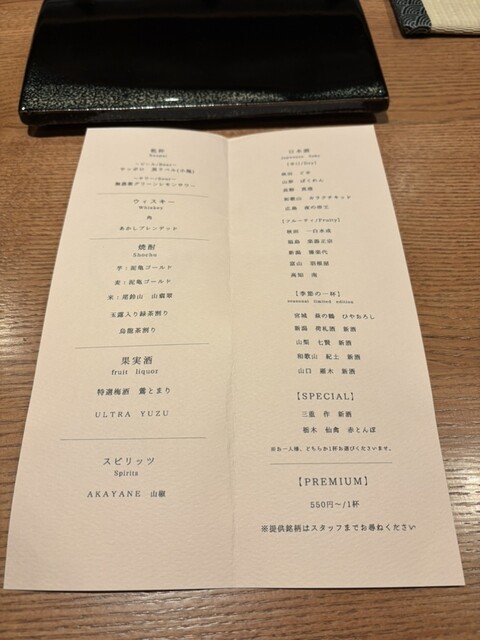 乾杯
Kanpai
～ビール/Beer～
サッポロ 黒ラベル(小瓶)
～サワー/Sour～
無農薬グリーンレモンサワー
ウィスキー
Whiskey
角
あかしブレンデッド
焼酎
Shochu
芋：泥亀ゴールド
麦：泥亀ゴールド
米：尾鈴山 山翡翠
玉露入り緑茶割り
烏龍茶割り
果実酒
fruit liquor
特選梅酒 鶯とまり
ULTRA YUZU
スピリッツ
Spirits
AKAYANE 山椒
日本酒
Japanese Sake
【辛口/Dry】
秋田
山形 ばくれん
長野
和歌山
広島 
【フルーティ/Fruity】
秋田 一白水成
福島
新潟
富山 羽根屋
高知 南
【季節の一杯】
seasonal limited edition
宮城 萩の鶴 ひやおろし
新潟 荷札酒 新酒
山梨 七賢 新酒
和歌山 紀土 新酒
山口 雁木 新酒
【SPECIAL】
三重 作 新酒
栃木 仙禽 赤とんぼ
※お一人様、どちらか1杯お選びくださいませ。
【PREMIUM】
550円～/1杯
※提供銘柄はスタッフまでお尋ねください